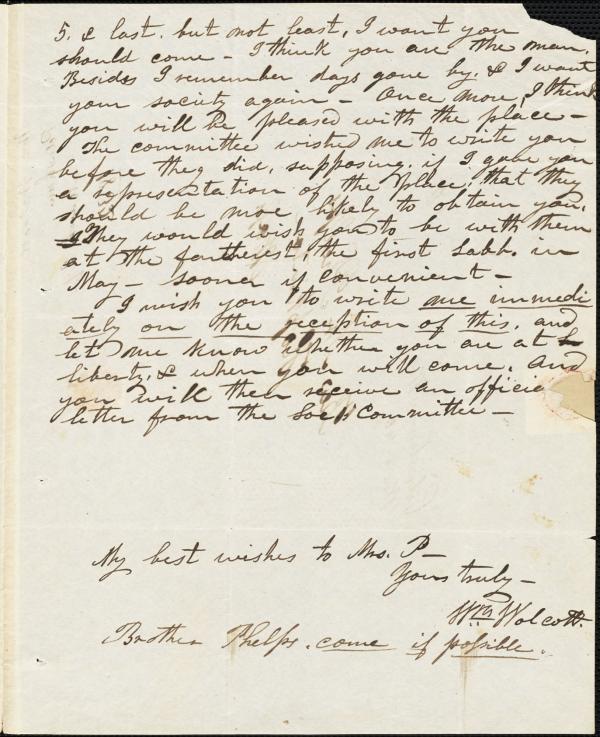 5. & last. but not least, I want you
should come - I think you are the man.
Besides I remember days gone by. & I want
your society again - Once more, I think
you will be pleased with the place -
The committee wished me to write you
before they did, supposing, if I gave you
a representation of the place, that they
should be more likely to obtain you.
They would wish you to be with them
at the fartherest, the first Sabb. in
May - sooner if convenient -
I wish you to write me immedi
ately on the reception of this. and
let me know whether you are at
liberty, & when you will come. And
you will then receive an officia
letter from the Soc. Committee -
My best wishes to Mrs. P -
Yours truly -
Wm Wolcott.
Brother Phelps. come if possible.